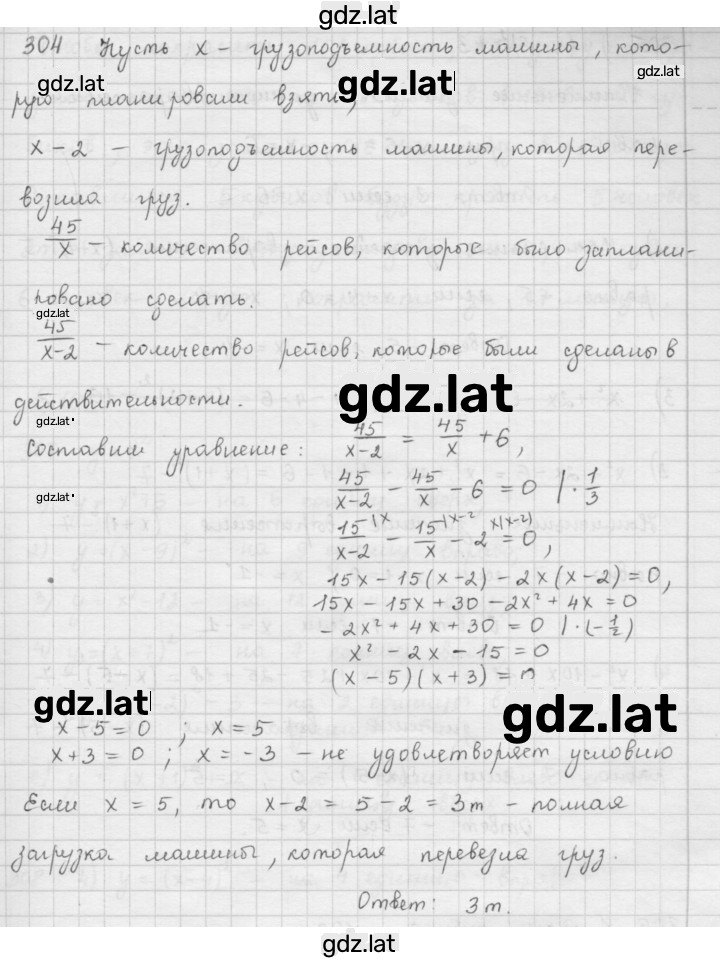 gdz.lat
304 Пусть x – грузоподъемность машины, кото-
gdz.lat
gdz.lat
gdz.lat
рую планировали взять,
x – 2 – грузоподъемность машины, которая пере-
возила груз.
45/x – количество рейсов, которые было заплани-
ровано сделать.
gdz.lat
45/(x-2) – количество рейсов, которые были сделаны в
gdz.lat
действительности.
gdz.lat
Составим уравнение: 45/(x-2) = 45/x + 6,
45/(x-2) – 45/x – 6 = 0 | · 1/3
gdz.lat
15/(x-2) |x – 15/x |x-2 – 2 x(x-2) = 0,
15x – 15(x – 2) – 2x(x – 2) = 0,
15x – 15x + 30 – 2x² + 4x = 0
– 2x² + 4x + 30 = 0 | · (– 1/2)
x² – 2x – 15 = 0
(x – 5)(x + 3) = 0
gdz.lat
gdz.lat
x – 5 = 0 ; x = 5
x + 3 = 0 ; x = – 3 – не удовлетворяет условию
Если x = 5, то x – 2 = 5 – 2 = 3т – полная
загрузка машины, которая перевезла груз.
Ответ: 3т.
gdz.lat